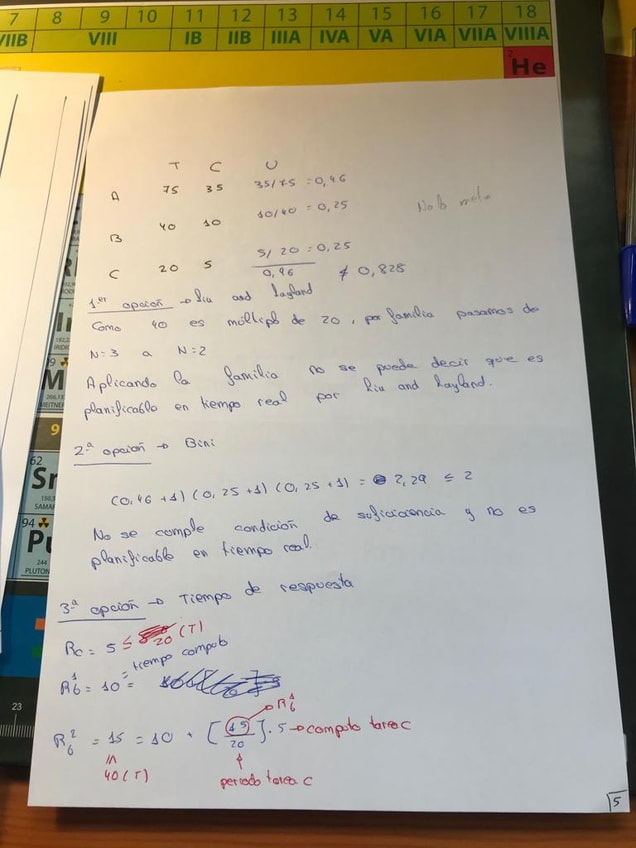 7 8 9 10 11 12 13 14 15 16 17 18
VIIB VIII IB IIB IIIA IVA VA VIA VIIA VIIIA
2
He
T C U
A 75 35 35/75 = 0,46
B 40 10 10/40 = 0,25
C 20 5 5/20 = 0,25
0,96 ≰ 0,828
1er opción → Liu and Layland
Como 40 es múltiplo de 20, por familia pasamos de
N=3 a N=2
Aplicando la familia no se puede decir que es
planificable en tiempo real por Liu and Layland.
2.ª opción → Bini
(0,46 +1) (0,25+1) (0,25+1) = 2,29 ≤ 2
No se comple condición de suficiciencia y no es
planificable en tiempo real.
3.ª opción → Tiempo de respuesta
Rc = 5 ≤ 20 (T)
R6¹ = 10 = tiempo computo
R6¹
R6² = 15 = 10 + [15/20] · 5 → computo tarea C
40 (T)
periodo tarea C
5
9
62
Sm
SAMAR
94
Pu
244
PLUTON
MEITNER
23